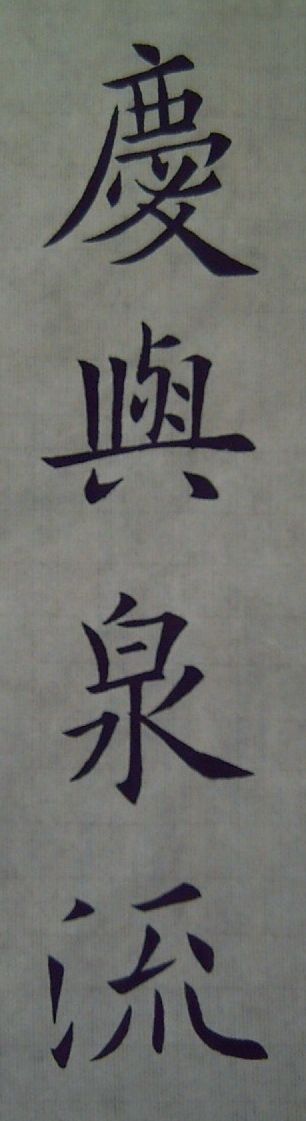 慶與泉流